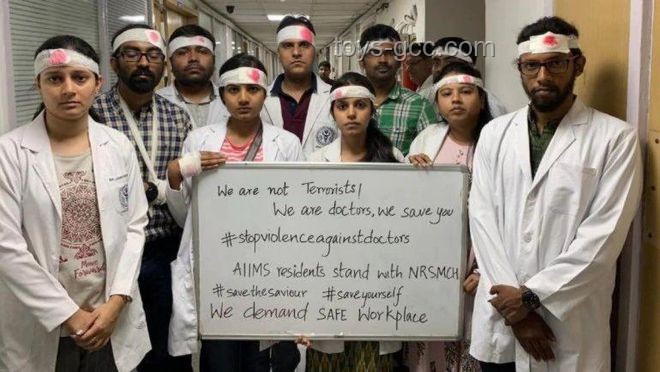 toys-gcc.com
We are not Terrorists/
We are doctors, we save you
#stopviolenceagainstdoctors
AIIMS residents stand with NRSMCH
#savethesaviour #saveyourself
We demand SAFE Workplace